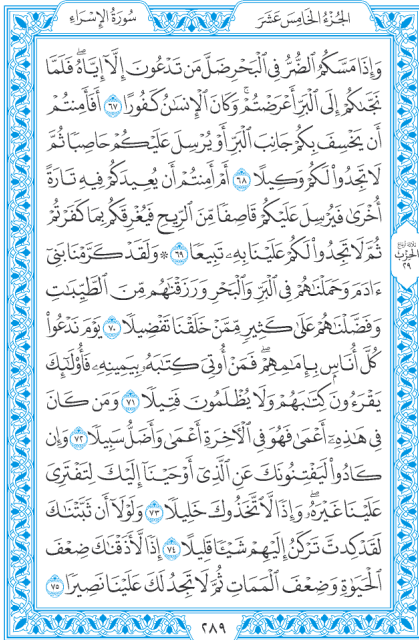 سُورَةُ الإِسْرَاءِ
الجُزْءُ الخَامِسَ عَشَرَ
وَإِذَا مَسَّكُمُ ٱلضُّرُّ فِي ٱلْبَحْرِ ضَلَّ مَن تَدْعُونَ إِلَّآ إِيَّاهُۖ فَلَمَّا
نَجَّىٰكُمْ إِلَى ٱلْبَرِّ أَعْرَضْتُمْۚ وَكَانَ ٱلْإِنسَٰنُ كَفُورًا ٦٧ أَفَأَمِنتُمْ
أَن يَخْسِفَ بِكُمْ جَانِبَ ٱلْبَرِّ أَوْ يُرْسِلَ عَلَيْكُمْ حَاصِبًا ثُمَّ
لَا تَجِدُوا۟ لَكُمْ وَكِيلًا ٦٨ أَمْ أَمِنتُمْ أَن يُعِيدَكُمْ فِيهِ تَارَةً
أُخْرَىٰ فَيُرْسِلَ عَلَيْكُمْ قَاصِفًا مِّنَ ٱلرِّيحِ فَيُغْرِقَكُم بِمَا كَفَرْتُمْ
ثُمَّ لَا تَجِدُوا۟ لَكُمْ عَلَيْنَا بِهِۦ تَبِيعًا ٦٩ ۞ وَلَقَدْ كَرَّمْنَا بَنِيٓ
ءَادَمَ وَحَمَلْنَٰهُمْ فِي ٱلْبَرِّ وَٱلْبَحْرِ وَرَزَقْنَٰهُم مِّنَ ٱلطَّيِّبَٰتِ
وَفَضَّلْنَٰهُمْ عَلَىٰ كَثِيرٍ مِّمَّنْ خَلَقْنَا تَفْضِيلًا ٧٠ يَوْمَ نَدْعُوا۟
كُلَّ أُنَاسٍۭ بِإِمَٰمِهِمْۖ فَمَنْ أُوتِيَ كِتَٰبَهُۥ بِيَمِينِهِۦ فَأُو۟لَٰٓئِكَ
يَقْرَءُونَ كِتَٰبَهُمْ وَلَا يُظْلَمُونَ فَتِيلًا ٧١ وَمَن كَانَ
فِي هَٰذِهِۦٓ أَعْمَىٰ فَهُوَ فِي ٱلْءَاخِرَةِ أَعْمَىٰ وَأَضَلُّ سَبِيلًا ٧٢ وَإِن
كَادُوا۟ لَيَفْتِنُونَكَ عَنِ ٱلَّذِيٓ أَوْحَيْنَآ إِلَيْكَ لِتَفْتَرِيَ
عَلَيْنَا غَيْرَهُۥۖ وَإِذًا لَّٱتَّخَذُوكَ خَلِيلًا ٧٣ وَلَوْلَآ أَن ثَبَّتْنَٰكَ
لَقَدْ كِدتَّ تَرْكَنُ إِلَيْهِمْ شَيْـًٔا قَلِيلًا ٧٤ إِذًا لَّأَذَقْنَٰكَ ضِعْفَ
ٱلْحَيَوٰةِ وَضِعْفَ ٱلْمَمَاتِ ثُمَّ لَا تَجِدُ لَكَ عَلَيْنَا نَصِيرًا ٧٥
الحِزْبُ
٢٩
٢٨٩